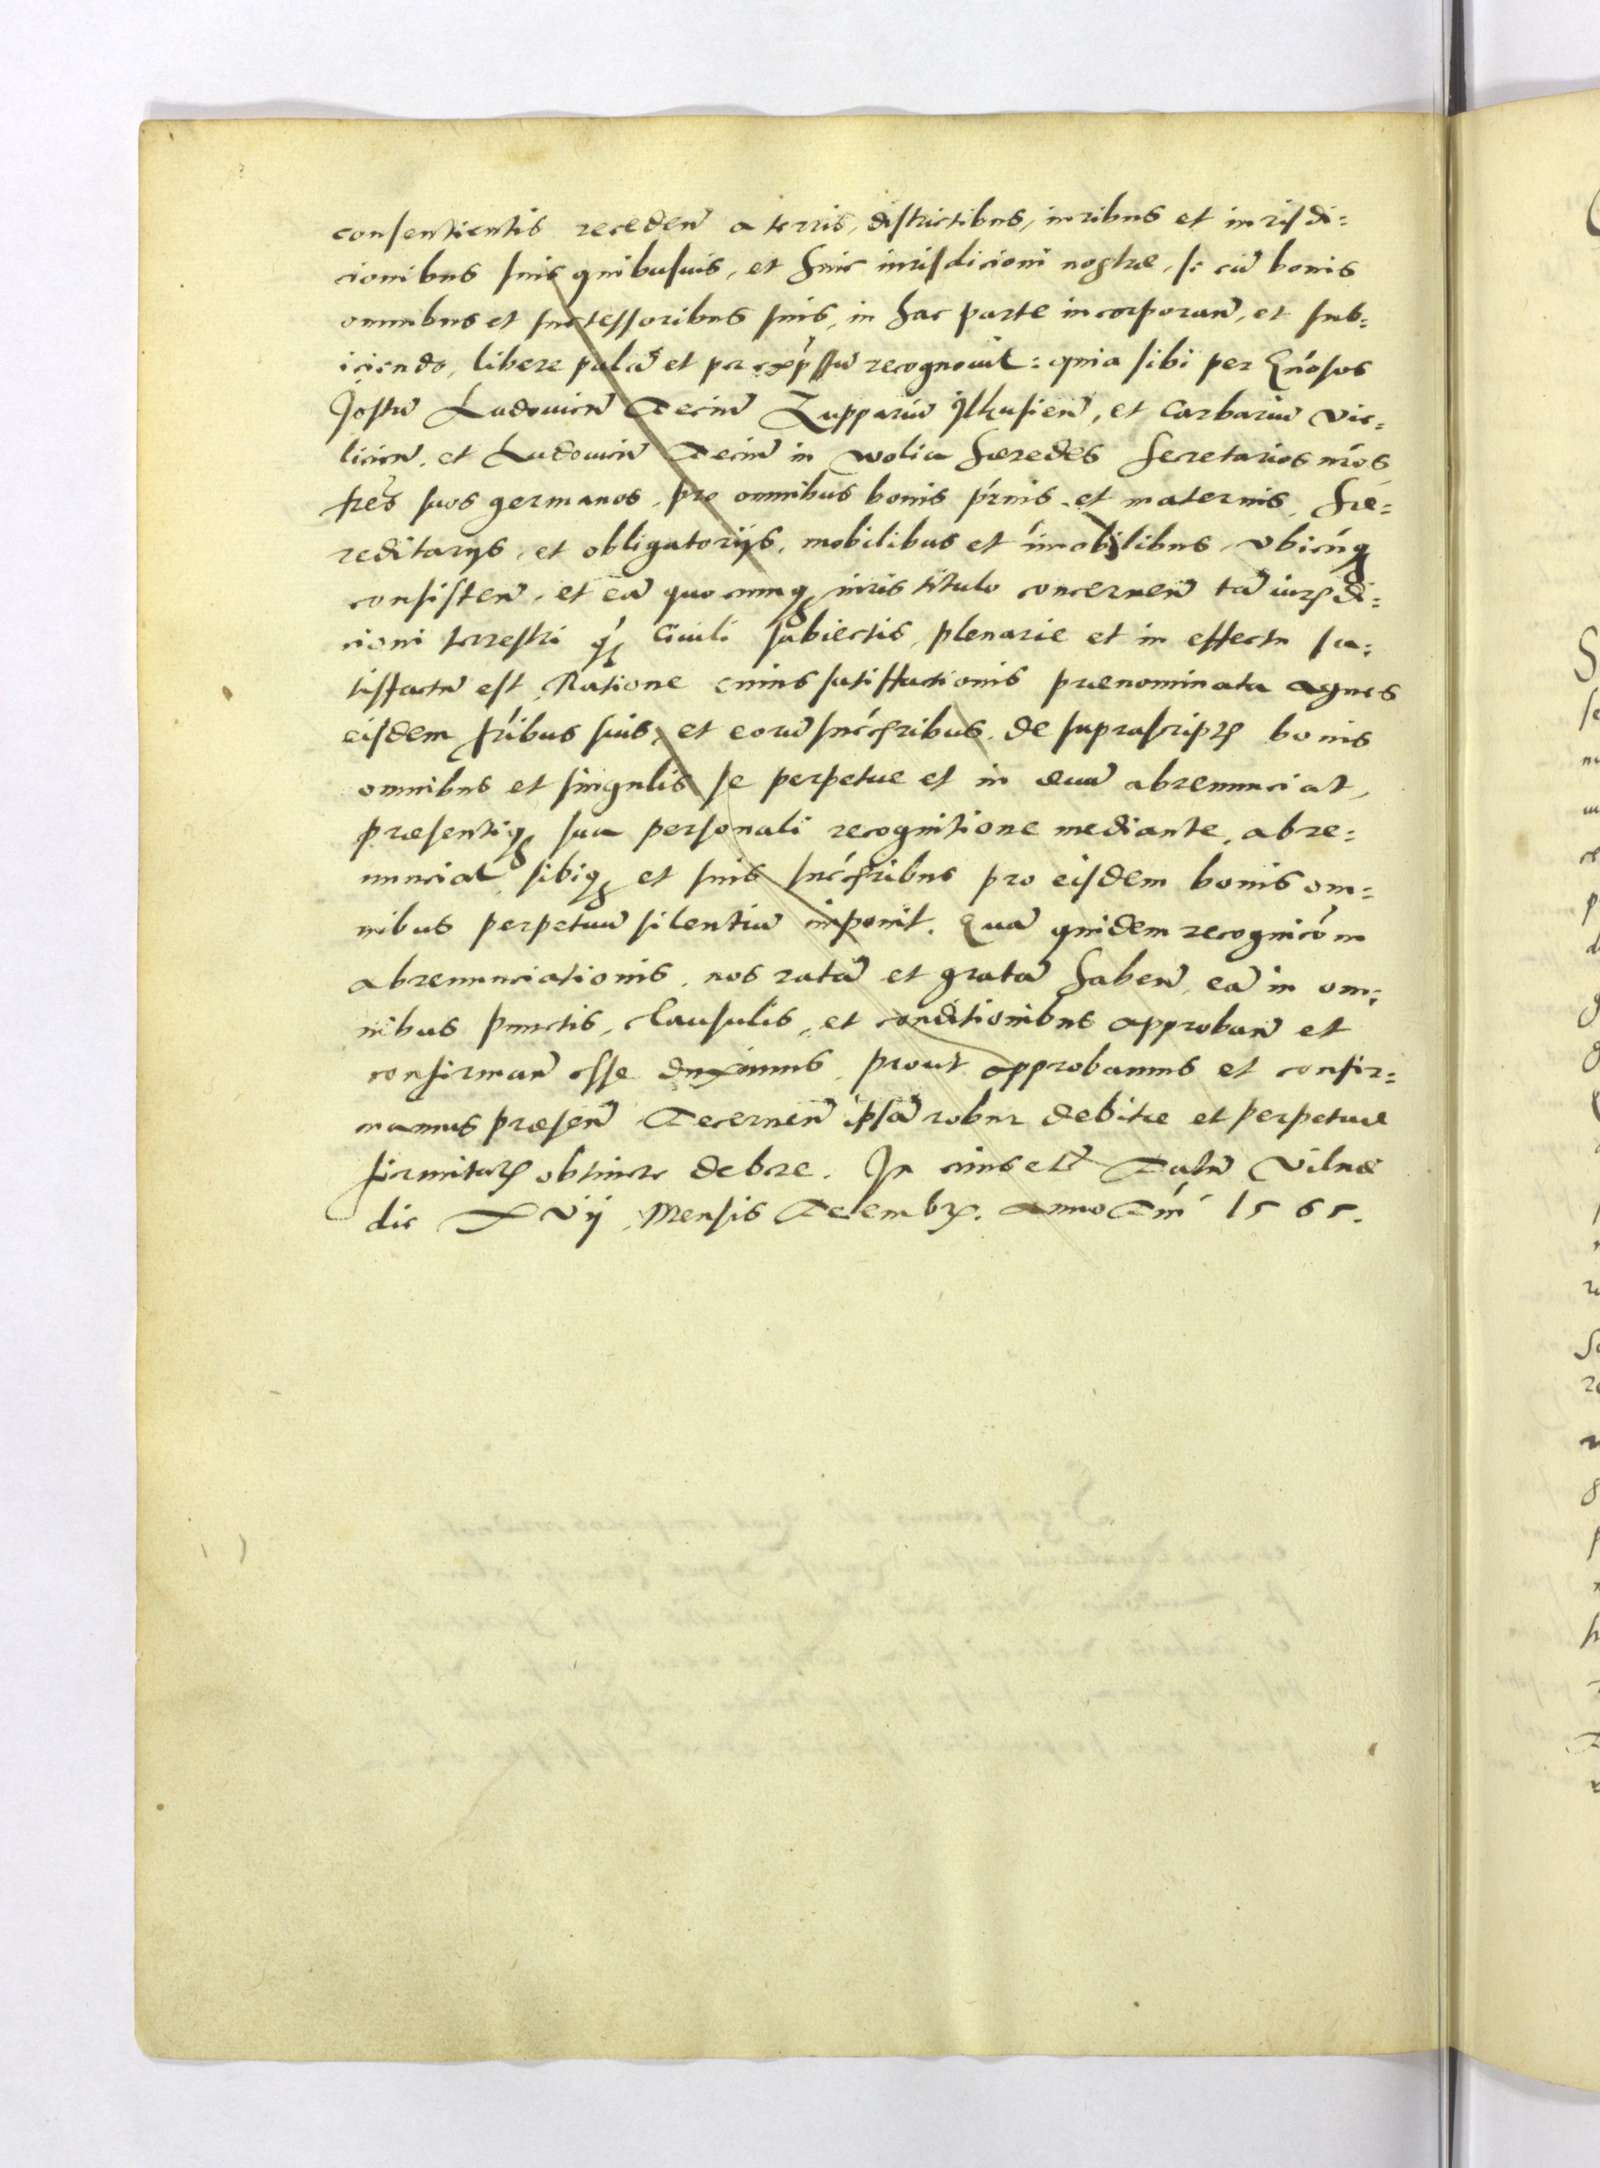 consentientis receden̄ a terris, districtibus, iuribus et iurisdi=
cionibus suis quibusuis, et huic iurisdicioni nostræ, se cū bonis
omnibus et successoribus suis, in hac parte incorporan̄, et sub=
iiciendo, libere palā et per exṕssū recognouit: quia sibi per Gńosos
Jostū Ludouicū Decium Zuppariū Ilkusien̄, et Carbariū Vie=
licien̄, et Ludouicū Decium in Wolia hæredes Secretarios nr̄os
fres̄ suos germanos, pro omnibus bonis pr̄nis et maternis, hæ=
reditarijs, et obligatorijs, mobilibus et im̄obilibus, vbicūnq
consisten̄, et eā quocunq iuris titulo concernen̄ tā iurisdi=
cioni terrestri q̄ Ciuili subiectis, plenarie et in effectu sa=
tisfactū est. Ratione cuius satisfactionis prænominata Agnes
eisdem fribus suis, et eorū succ̄ribus, de suprascriptis bonis
omnibus et singulis se perpetue et in æuū abrenunciat,
præsentiq sua personali recognitione mediante, abre=
nunciat, sibiq et suis succ̄ribus pro eisdem bonis om=
nibus perpetuū silentiū imponit. Quā quidem recognicōm
abrenunciationis, nos ratā et gratā haben̄, eā in om=
nibus punctis, clausulis, et conditionibus approban̄ et
confirman̄ esse duximus, prout approbamus et confir=
mamus præsen̄ Decernen̄ ipsā robur debitæ et perpetuæ
firmitatis obtinere debere. In cuius etc̄ Datū Vilnæ
die XVij Mensis Decembr. Anno Dnī 1565.